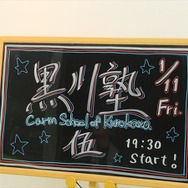 黒川塾
1/11
Fri.
Carm School of Kurokawa.
伍
19:30
Start!